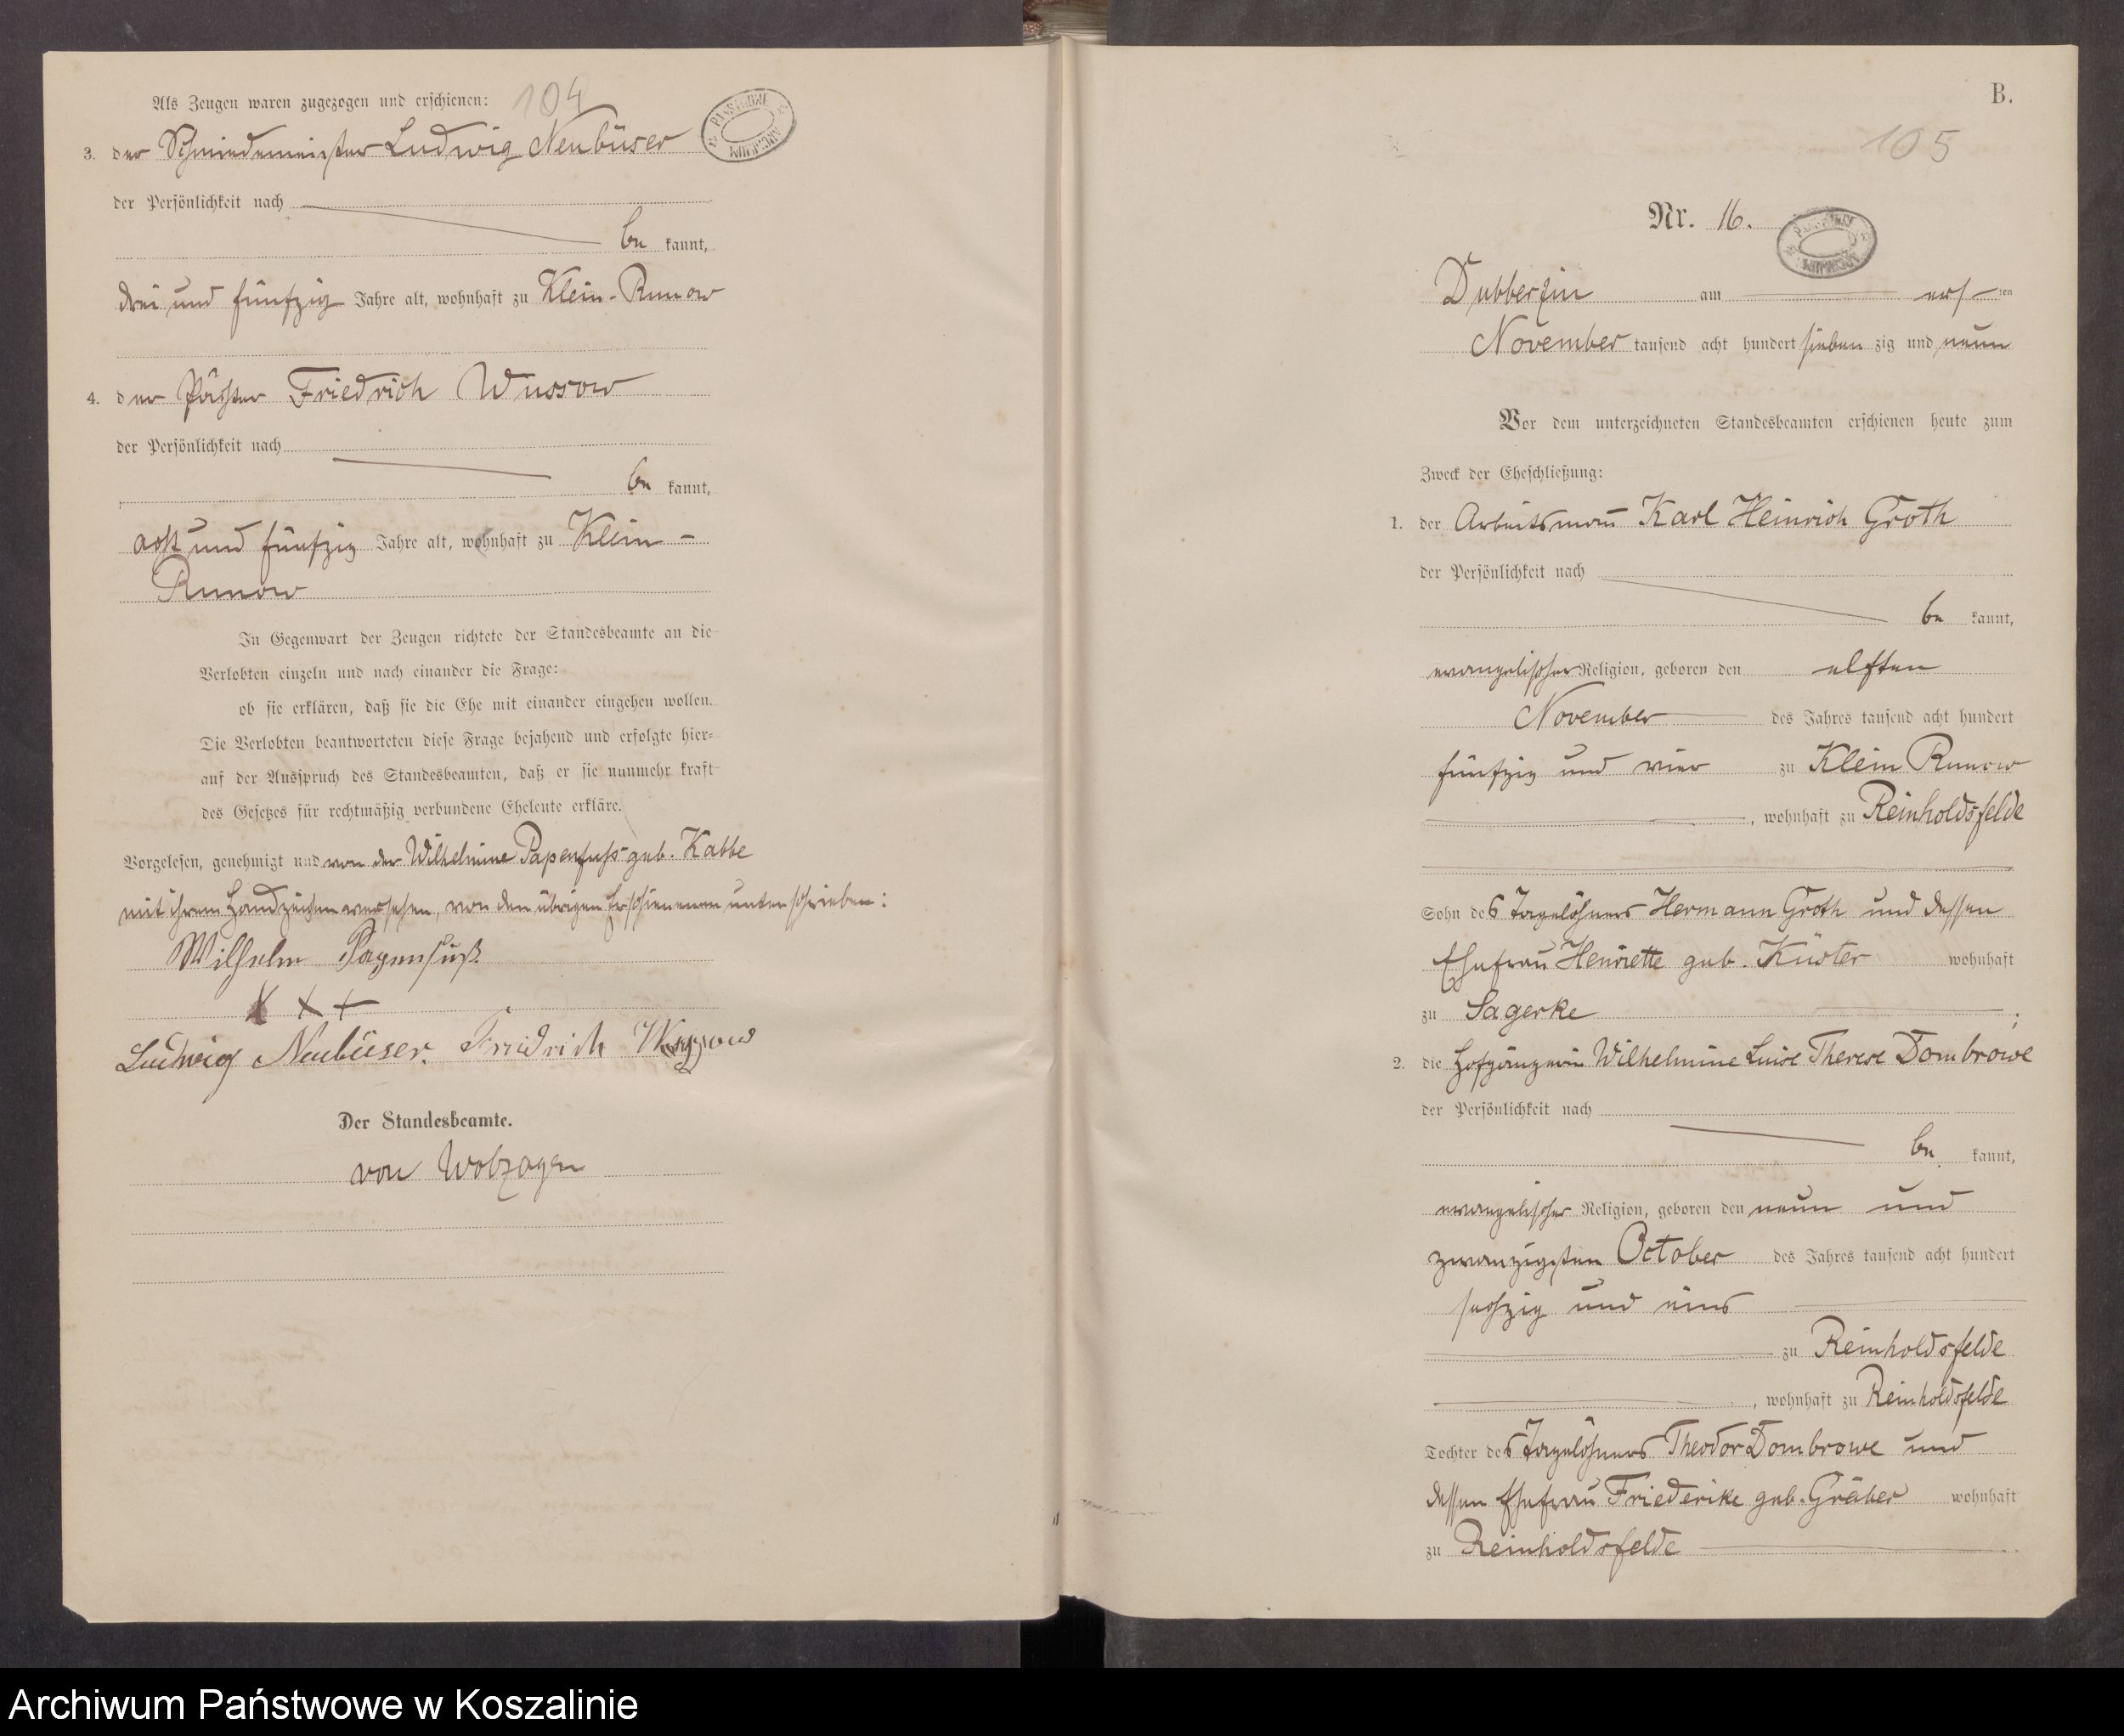 104
Als Zeugen waren zugezogen und erschienen:
3. der Schmiedemeister Ludwig Neubüser
der Persönlichkeit nach
be kannt,
drei und fünfzig Jahre alt, wohnhaft zu Klein-Runow
4. der Pächter Friedrich Wussow
der Persönlichkeit nach
be kannt,
acht und fünfzig Jahre alt, wohnhaft zu Klein-
Runow
In Gegenwart der Zeugen richtete der Standesbeamte an die
Verlobten einzeln und nach einander die Frage:
ob sie erklären, daß sie die Ehe mit einander eingehen wollen.
Die Verlobten beantworteten diese Frage bejahend und erfolgte hier-
auf der Ausspruch des Standesbeamten, daß er sie nunmehr kraft
des Gesetzes für rechtmäßig verbundene Eheleute erkläre.
Vorgelesen, genehmigt und von der Wilhelmine Papenfuß geb. Kabbe
mit ihrem Handzeichen versehen, von den übrigen Erschienenen unterschrieben:
Wilhelm Papenfuß
X X +
Ludwig Neubüser. Friedrich Wussow
Der Standesbeamte.
von Wolzogen
B.
105
Nr. 16.
Dubberzin am ers-ten
November tausend acht hundert sieben zig und neun
Vor dem unterzeichneten Standesbeamten erschienen heute zum
Zweck der Eheschließung:
1. der Arbeitsmann Karl Heinrich Groth
der Persönlichkeit nach
be kannt,
evangelischer Religion, geboren den elften
November des Jahres tausend acht hundert
fünfzig und vier zu Klein Runow
, wohnhaft zu Reinholdsfelde
Sohn des Tagelöhners Hermann Groth und dessen
Ehefrau Henriette geb. Küster wohnhaft
zu Sagerke ;
2. die Hofgängerin Wilhelmine Luise Therese Dombrowe
der Persönlichkeit nach
be kannt,
evangelischer Religion, geboren den neun und
zwanzigsten October des Jahres tausend acht hundert
sechzig und eins
zu Reinholdsfelde
, wohnhaft zu Reinholdsfelde
Tochter des Tagelöhners Theodor Dombrowe und
dessen Ehefrau Friederike geb. Gräber wohnhaft
zu Reinholdsfelde
Archiwum Państwowe w Koszalinie